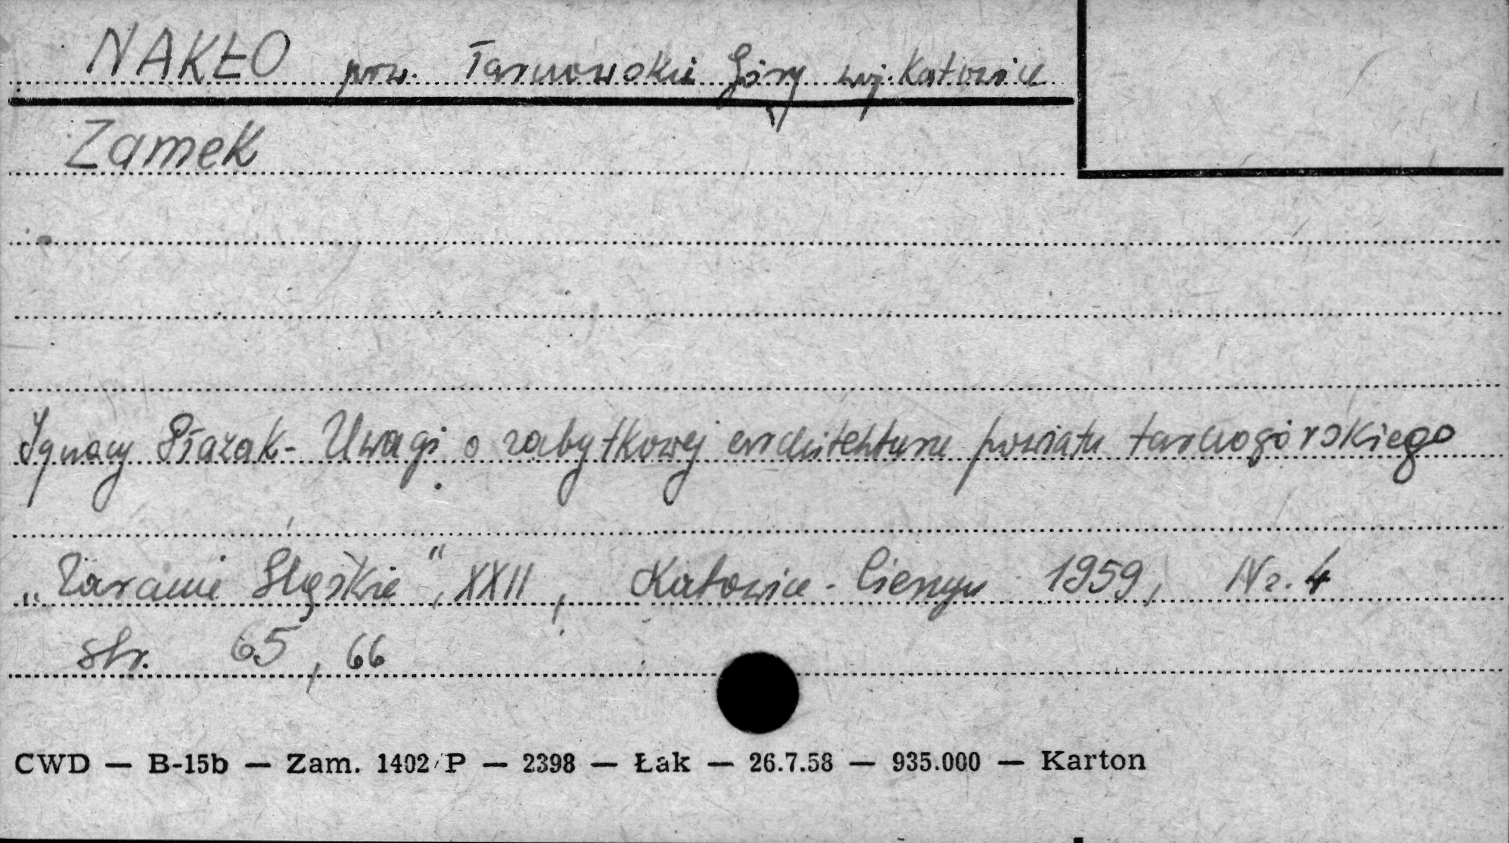 NAKŁO pow. Tarnowskie Góry woj. Katowice
Zamek
Ignacy Płazak - Uwagi o zabytkowej architekturze powiatu tarnogórskiego
„Zaranie Śląskie", XXII, Katowice - Cieszyn 1959, Nr. 4
str. 65, 66
CWD — B-15b — Zam. 1402/P — 2398 — Łak — 26.7.58 — 935.000 — Karton